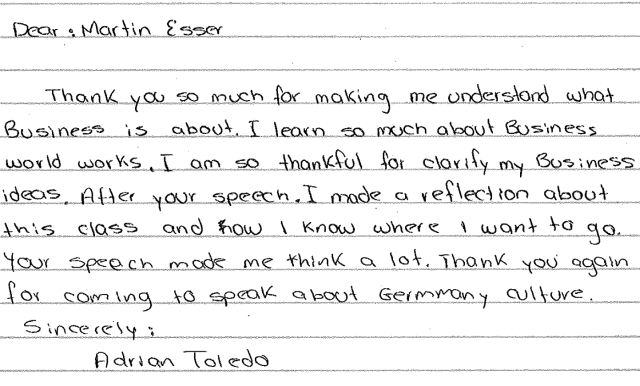 Dear : Martin Esser
Thank you so much for making me understand what
Business is about. I learn so much about Business
world works. I am so thankful for clarify my Business
ideas. After your speech. I made a reflection about
this class and how I know where I want to go.
Your speech made me think a lot. Thank you again
for coming to speak about Germmany culture.
Sincerely :
Adrian Toledo